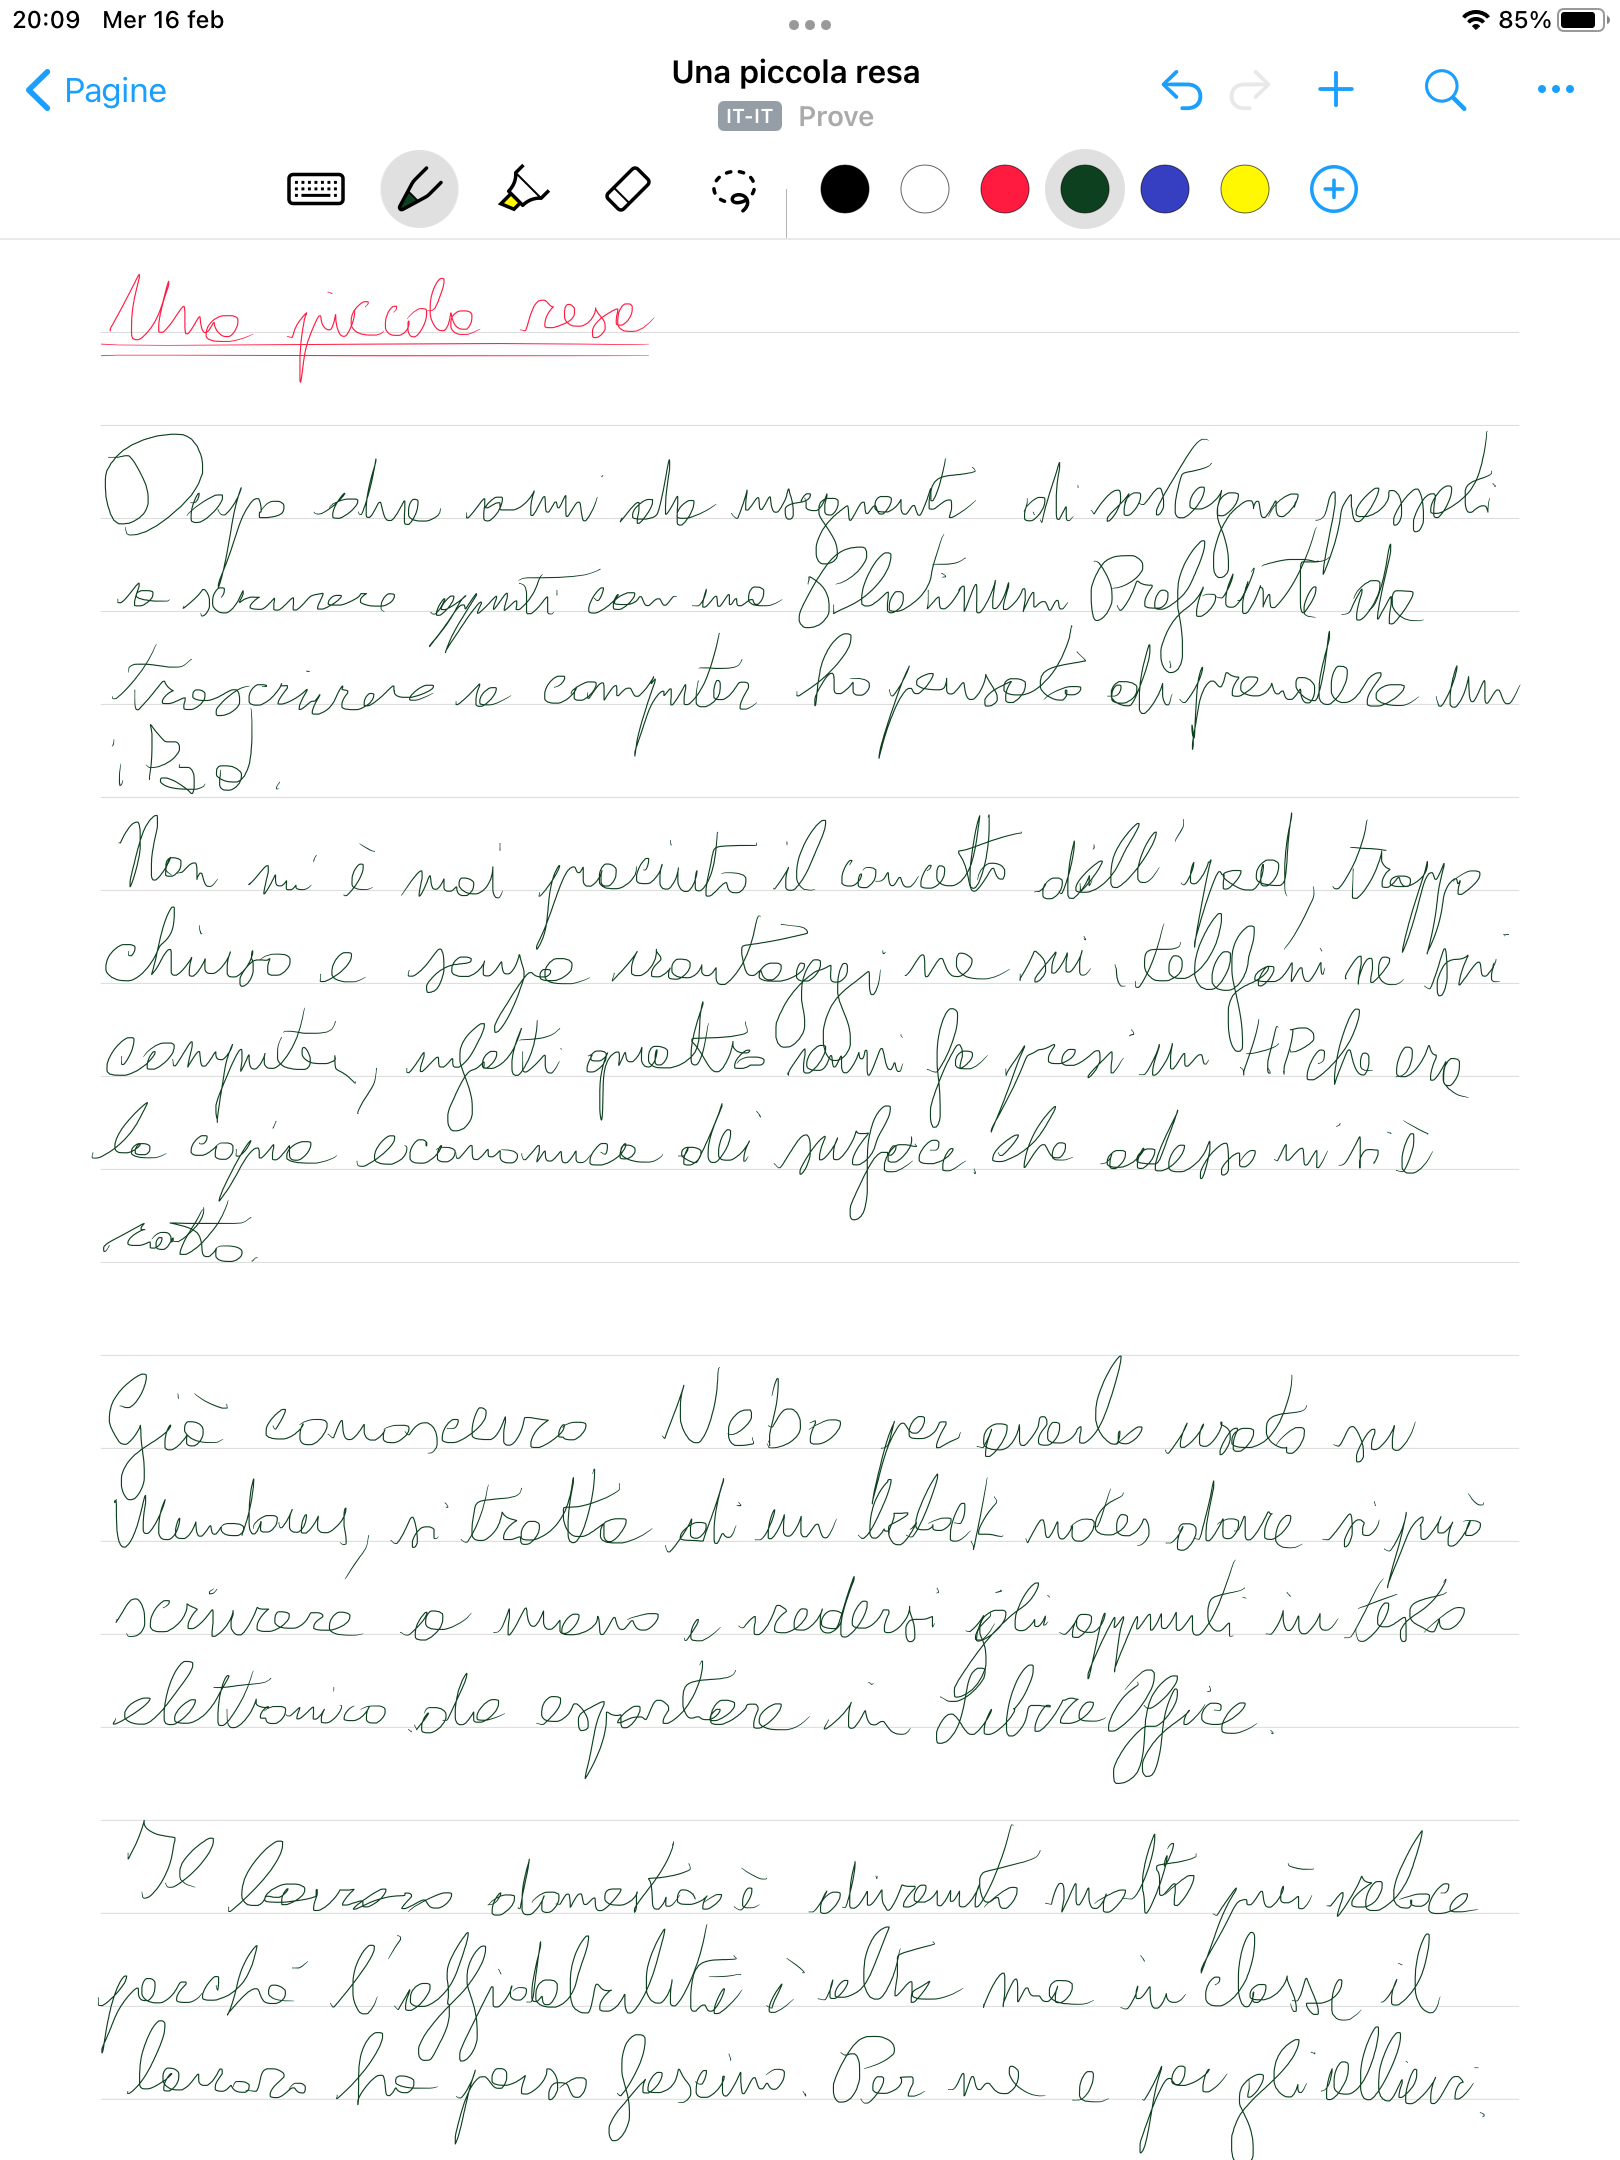 20:09 Mer 16 feb 85%
Pagine
Una piccola resa
IT-IT Prove
Una piccola resa
Dopo due anni da insegnante di sostegno passati
a scrivere appunti con una Platinum Prefounte da
trascrivere a computer ho pensato di prendere un
iPad.
Non mi è mai piaciuto il concetto dell'ipad, troppo
chiuso e senza vantaggi ne sui telefoni ne sui
computer, infatti quattro anni fa presi un HP che era
la copia economica dei surface. che adesso mi si è
rotto.
Già conoscevo Nebo per averlo usato su
Windows, si tratta di un block notes dove si può
scrivere a mano e vedersi gli appunti in testo
elettronico da esportare in LibreOffice.
Il lavoro domestico è divenuto molto più veloce
perché l'affidabilità è alta ma in classe il
lavoro ha perso fascino. Per me e per gli allievi.